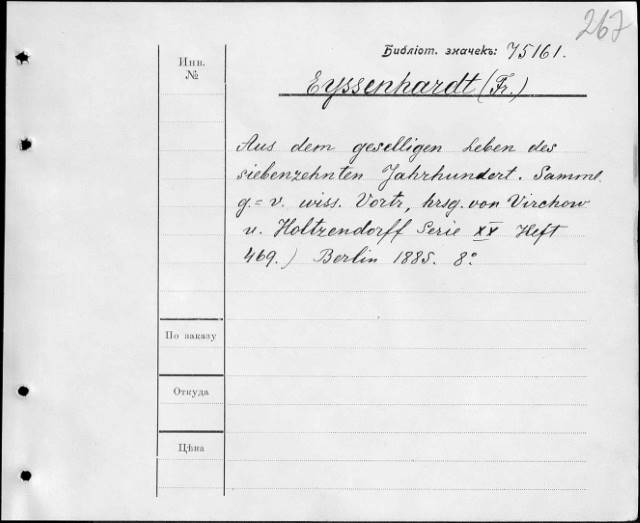 267
Библіот. значекъ: 75161.
Инв.
№
Eyssenhardt (Fr.)
Aus dem geselligen Leben des
siebenzehnten Jahrhundert. Samml.
g. = v. wiss. Vortr, hrsg. von Virchow
u. Holtzendorff Serie XX Heft
469.) Berlin 1885. 8°
По заказу
Откуда
Цѣна